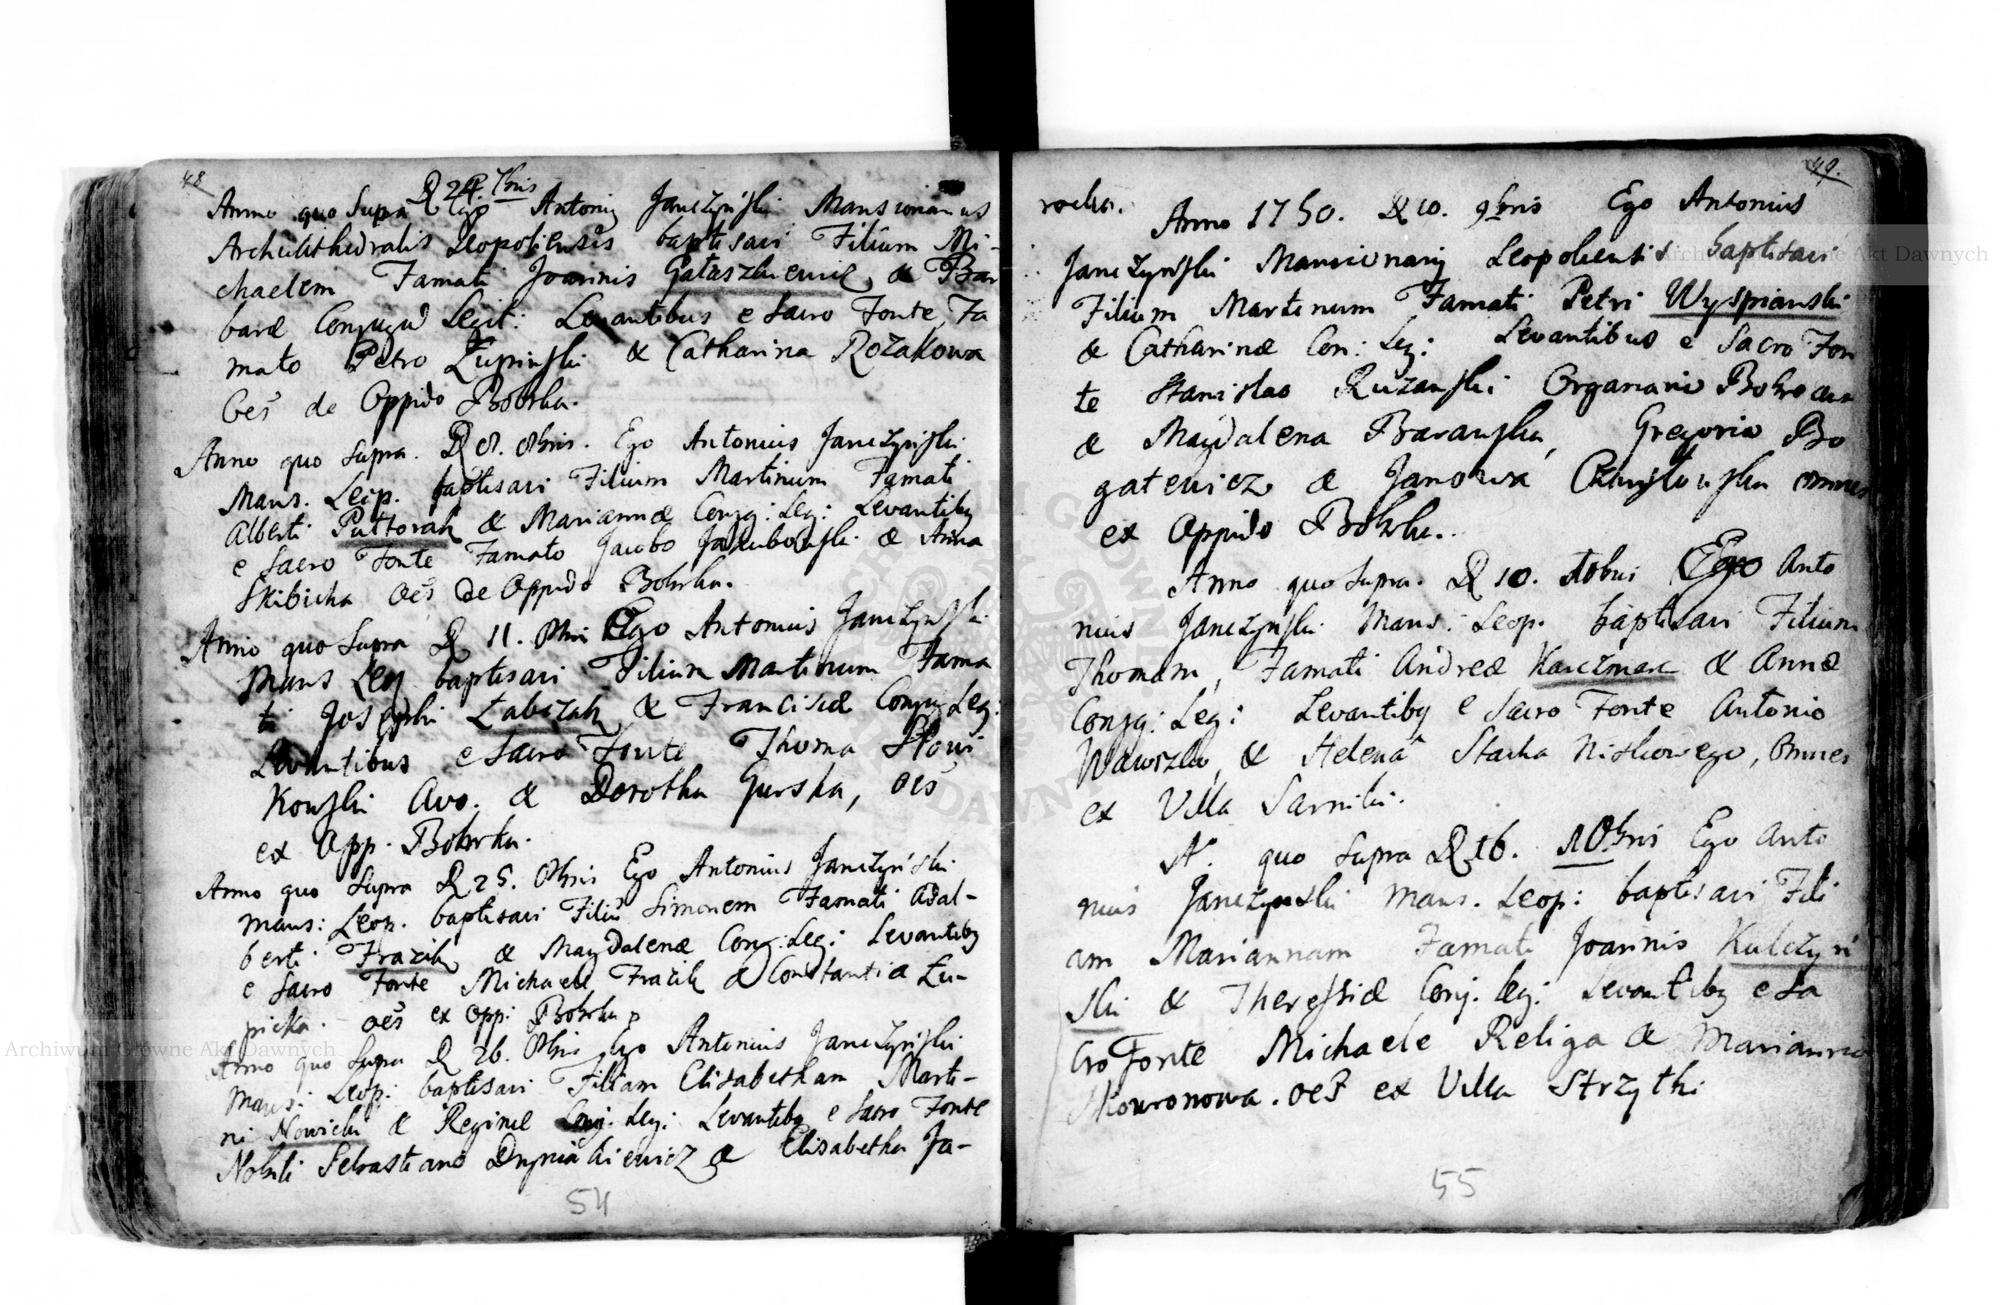 48
D 24. 7bris
Anno quo Supra Ego Antoni9 Janczyński Mansionarius
Archicathedralis Leopoliensis baptisavi Filium Mi-
chaelem Famati Joannis Gałuszkiewic & Bar
baræ Conjugū Legit: Levantibus e Sacro Fonte Fa
mato Petro Łupinski & Catharina Rożakowa
oēs de Oppido Bobrka.
Anno quo Supra. D 8. 8bris. Ego Antonius Janczyński
Mans. Leop. baptisavi Filium Martinum Famati
Alberti Puttorak & Mariannæ Conjg: Leg: Levantib9
e Sacro Fonte Famato Jacobo Jakubowski & Anna
Skibicka oēs de Oppido Bobrka.
Anno quo Supra D 11. 8bris Ego Antonius Janczyński
Mans Leop baptisavi Filium Martinum Fama
ti Josephi Łabczak & Franciscæ Conjug Leg:
Levantibus e Sacro Fonte Thoma Słowi
Konski Avo. & Dorotha Gurska, oēs
ex Opp. Bobrka.
Anno quo Supra D 25. 8bris Ego Antonius Janczyński
Mans: Leop. baptisavi Filiū Simonem Famati Adal-
berti Frazik & Magdalenæ Conj: Leg: Levantib9
e Sacro Fonte Michaele Frazik & Constantia Łu-
picka. oēs ex Opp: Bobrka
Anno quo Supra D 26. 8bris Ego Antonius Janczyński
Mans: Leop: baptisavi Filiam Elisabetham Marti-
ni Nowicki & Reginæ Conj: Leg: Levantib9 e Sacro Fonte
Nobili Sebastiano Dryniakiewicz & Elisabetha Ja-
54
49.
rocka.
Anno 1750. D 10. 9bris Ego Antonius
Janczyński Mansionari9 Leopoliensis baptisavi
Filium Martinum Famati Petri Wyspianski
& Catharinæ Con: Leg: Levantibus e Sacro Fon
te Stanislao Ruzanski Organario Bobrocen
& Magdalena Baranska, Gregorio Bo
gatewicz & Janowa omnes
ex Oppido Bobrka.
Anno quo Supra. D 10. Ego Anto
nius Janczyński Mans: Leop. baptisavi Filium
Thomam, Famati Andreæ Karczmarz & Annæ
Conjg: Leg: Levantib9 e Sacro Fonte Antonio
Wawszko, & Helena Stacha Niskowego, Omnes
ex Villa Sarniki.
A. quo Supra D 16. 10bris Ego Anto
nius Janczynski Mans. Leop: baptisavi Fili
am Mariannam Famati Joannis Kulczyń
ski & Theressiæ Conj. leg: Levantib9 e Sa
cro Fonte Michaele Religa & Marianna
Skowronowa. oēs ex Villa Strzytki
55
Archiwum Główne Akt Dawnych
Archiwum Główne Akt Dawnych
ARCHIWUM GŁÓWNE AKT DAWNYCH